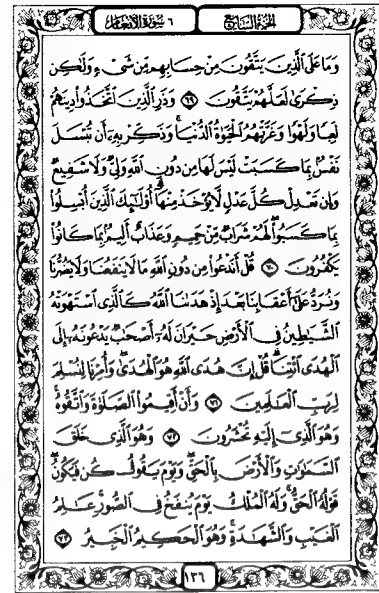 الجزء السابع ٦ سورة الأنعام
وَمَا عَلَى ٱلَّذِينَ يَتَّقُونَ مِنْ حِسَابِهِم مِّن شَىْءٍ وَلَٰكِن
ذِكْرَىٰ لَعَلَّهُمْ يَتَّقُونَ ٦٩ وَذَرِ ٱلَّذِينَ ٱتَّخَذُوا۟ دِينَهُمْ
لَعِبًا وَلَهْوًا وَغَرَّتْهُمُ ٱلْحَيَوٰةُ ٱلدُّنْيَا ۚ وَذَكِّرْ بِهِۦٓ أَن تُبْسَلَ
نَفْسٌۢ بِمَا كَسَبَتْ لَيْسَ لَهَا مِن دُونِ ٱللَّهِ وَلِىٌّ وَلَا شَفِيعٌ
وَإِن تَعْدِلْ كُلَّ عَدْلٍ لَّا يُؤْخَذْ مِنْهَآ ۗ أُو۟لَٰٓئِكَ ٱلَّذِينَ أُبْسِلُوا۟
بِمَا كَسَبُوا۟ ۖ لَهُمْ شَرَابٌ مِّنْ حَمِيمٍ وَعَذَابٌ أَلِيمٌۢ بِمَا كَانُوا۟
يَكْفُرُونَ ٧٠ قُلْ أَنَدْعُوا۟ مِن دُونِ ٱللَّهِ مَا لَا يَنفَعُنَا وَلَا يَضُرُّنَا
وَنُرَدُّ عَلَىٰٓ أَعْقَابِنَا بَعْدَ إِذْ هَدَىٰنَا ٱللَّهُ كَٱلَّذِى ٱسْتَهْوَتْهُ
ٱلشَّيَٰطِينُ فِى ٱلْأَرْضِ حَيْرَانَ لَهُۥٓ أَصْحَٰبٌ يَدْعُونَهُۥٓ إِلَى
ٱلْهُدَى ٱئْتِنَا ۗ قُلْ إِنَّ هُدَى ٱللَّهِ هُوَ ٱلْهُدَىٰ ۖ وَأُمِرْنَا لِنُسْلِمَ
لِرَبِّ ٱلْعَٰلَمِينَ ٧١ وَأَنْ أَقِيمُوا۟ ٱلصَّلَوٰةَ وَٱتَّقُوهُ
وَهُوَ ٱلَّذِىٓ إِلَيْهِ تُحْشَرُونَ ٧٢ وَهُوَ ٱلَّذِى خَلَقَ
ٱلسَّمَٰوَٰتِ وَٱلْأَرْضَ بِٱلْحَقِّ ۖ وَيَوْمَ يَقُولُ كُن فَيَكُونُ ۚ
قَوْلُهُ ٱلْحَقُّ ۚ وَلَهُ ٱلْمُلْكُ يَوْمَ يُنفَخُ فِى ٱلصُّورِ ۚ عَٰلِمُ
ٱلْغَيْبِ وَٱلشَّهَٰدَةِ ۚ وَهُوَ ٱلْحَكِيمُ ٱلْخَبِيرُ ٧٣
١٣٦